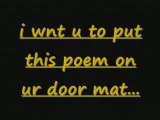 i wnt u to put
this poem on
ur door mat...